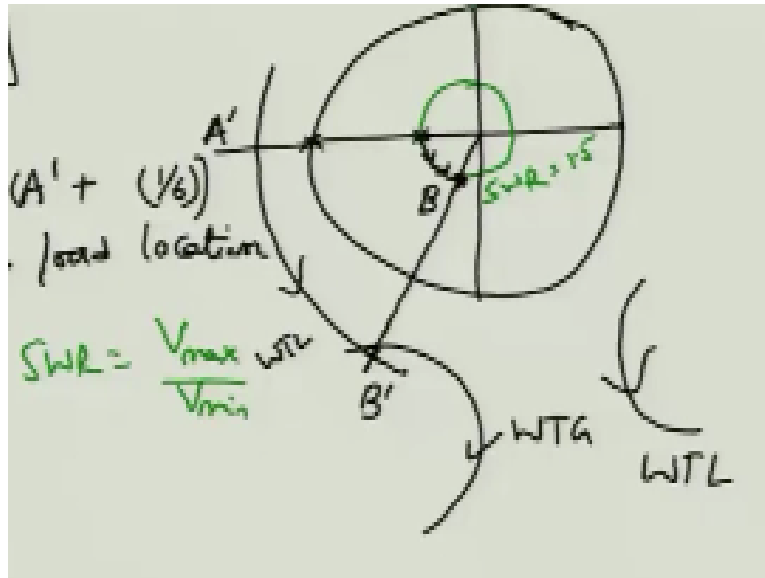 ]
A'
(A' + (1/6))
load location
B
SWR = 1.5
SWR = Vmax / Vmin
WTL
B'
WTG
WTL